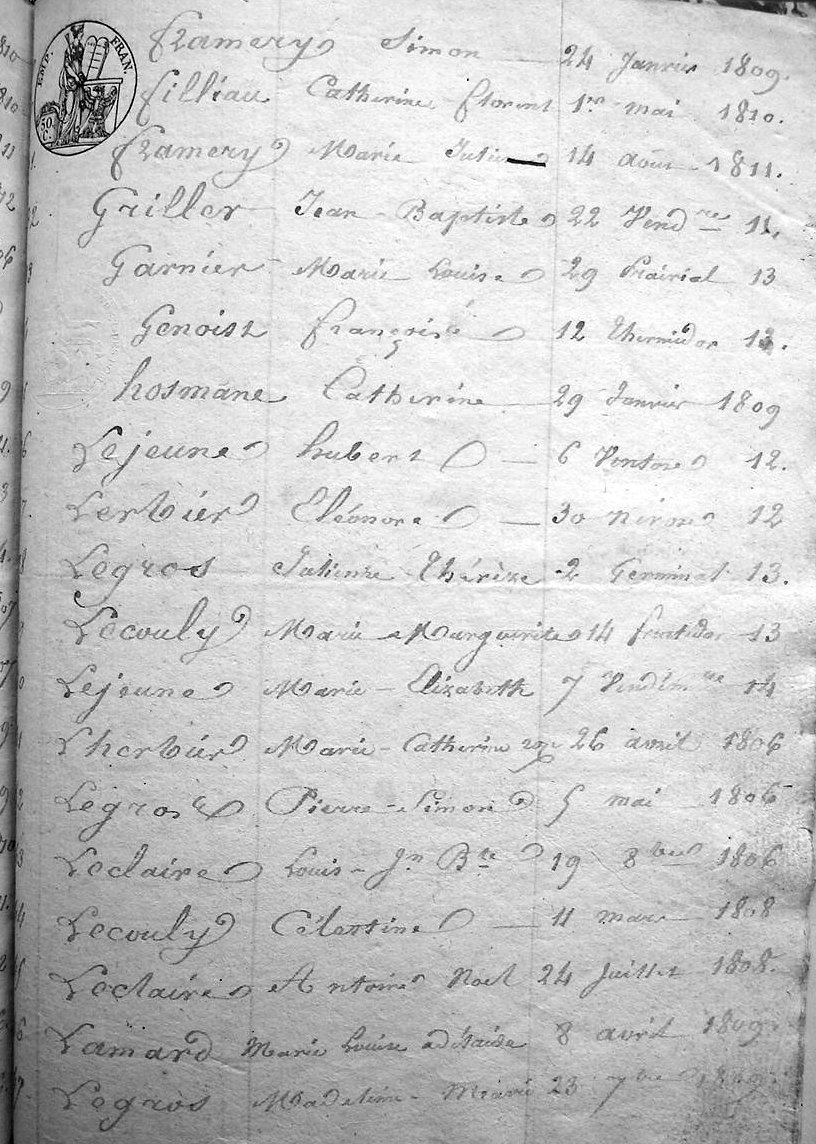 EMP. FRAN.
50 C.
framery Simon 24 Janvier 1809.
filliau Catherine florent 1er mai 1810.
framery Marie Julie 14 août 1811.
Griller Jean-Baptiste 22 Vendre 11.
Garnier Marie Louise 29 Prairial 13
Genoist françoise 12 thermidor 13.
hosmane Catherine 29 Janvier 1809
Lejeune hubert 6 Ventose 12.
Lerbier Eléonore 30 nivose 12
Legros Julienne thérèze 2 Germinal 13.
Lecouly Marie Marguerite 14 fructidor 13
Lejeune Marie-Elizabeth 7 Vendémre 14
Lherbier Marie-Catherine 26 avril 1806
Legros Pierre-Simon 5 mai 1806
Leclaire Louis-Jn Bte 19 8bre 1806
Lecouly Célestine 11 mars 1808
Leclaire Antoine Noel 24 Juillet 1808.
Lamard Marie Louise adélaïde 8 avril 1809.
Legros Madeleine-Marie 23 7bre 1809.